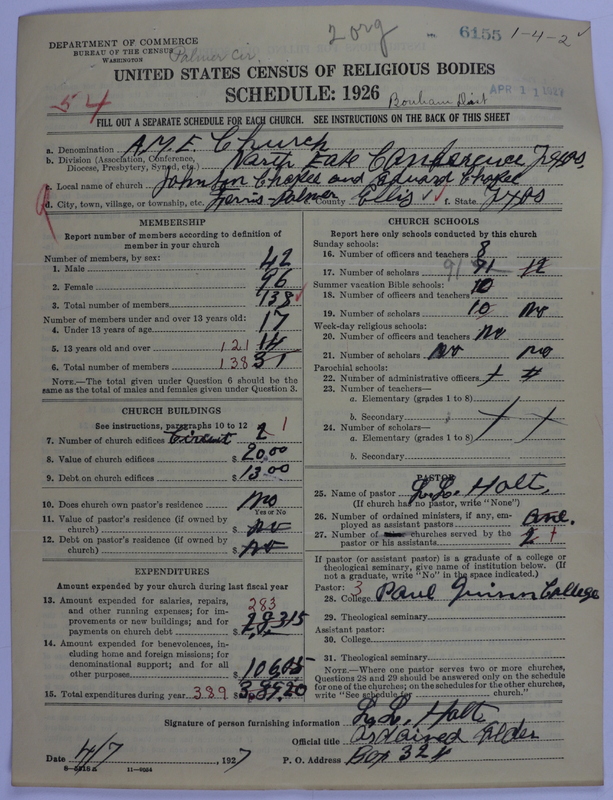 2 org
6155 1-4-2 ✓
DEPARTMENT OF COMMERCE
BUREAU OF THE CENSUS
WASHINGTON
Palmer Cir.
UNITED STATES CENSUS OF RELIGIOUS BODIES
SCHEDULE: 1926
54
Bonham Dist
APR 11 1927
FILL OUT A SEPARATE SCHEDULE FOR EACH CHURCH. SEE INSTRUCTIONS ON THE BACK OF THIS SHEET
a. Denomination A.M.E. Church
b. Division (Association, Conference, Diocese, Presbytery, Synod, etc.) North East Conference Texas
c. Local name of church Johnson Chapel and Edward Chapel
9
d. City, town, village, or township, etc. Ferris-Palmer e. County Ellis ✓ f. State Texas
MEMBERSHIP
Report number of members according to definition of
member in your church
Number of members, by sex:
1. Male 42
2. Female 96
3. Total number of members 138 ✓
Number of members under and over 13 years old:
4. Under 13 years of age 17
5. 13 years old and over 121 14
6. Total number of members 138 31
NOTE.—The total given under Question 6 should be the
same as the total of males and females given under Question 3.
CHURCH BUILDINGS
See instructions, paragraphs 10 to 12
7. Number of church edifices Circuit 2 1
8. Value of church edifices $ 20,00
9. Debt on church edifices $ 13.00
10. Does church own pastor's residence No
Yes or No
11. Value of pastor's residence (if owned by
church) $ No
12. Debt on pastor's residence (if owned by
church) $ No
EXPENDITURES
Amount expended by your church during last fiscal year
13. Amount expended for salaries, repairs,
and other running expenses; for im-
provements or new buildings; and for
payments on church debt $ 283
14. Amount expended for benevolences, in-
cluding home and foreign missions; for
denominational support; and for all
other purposes 106,05
15. Total expenditures during year 389 $ 389,20
CHURCH SCHOOLS
Report here only schools conducted by this church
Sunday schools:
16. Number of officers and teachers 8
17. Number of scholars 91 91
Summer vacation Bible schools:
18. Number of officers and teachers 10
19. Number of scholars 10 No
Week-day religious schools:
20. Number of officers and teachers No
21. Number of scholars No No
Parochial schools:
22. Number of administrative officers
23. Number of teachers—
a. Elementary (grades 1 to 8)
b. Secondary
24. Number of scholars—
a. Elementary (grades 1 to 8)
b. Secondary
PASTOR
25. Name of pastor L.L. Holt,
(If church has no pastor, write "None")
26. Number of ordained ministers, if any, em-
ployed as assistant pastors One.
27. Number of churches served by the
pastor or his assistants 2
If pastor (or assistant pastor) is a graduate of a college or
theological seminary, give name of institution below. (If
not a graduate, write "No" in the space indicated.)
Pastor: 3
28. College Paul Quinn College
29. Theological seminary
Assistant pastor:
30. College
31. Theological seminary
NOTE.—Where one pastor serves two or more churches,
Questions 28 and 29 should be answered only on the schedule
for one of the churches; on the schedules for the other churches,
write "See schedule for church."
Signature of person furnishing information L. L. Holt
Official title Ordained Elder
Date 4/7, 1927 P. O. Address Box 324
8-5818A 11-6054